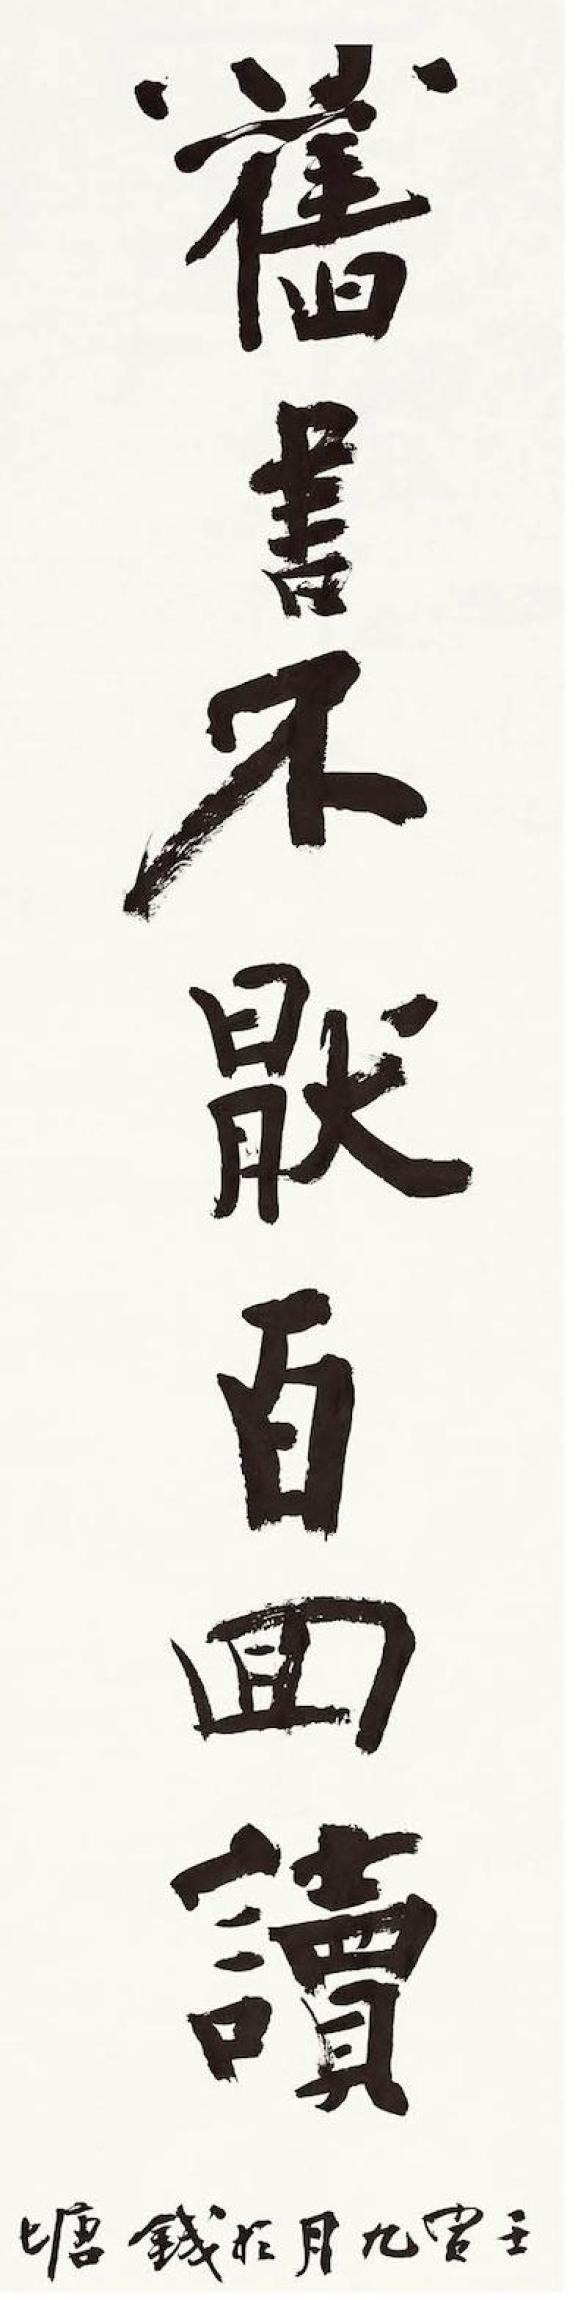 舊書不猒百回讀
壬寅九月於錢塘